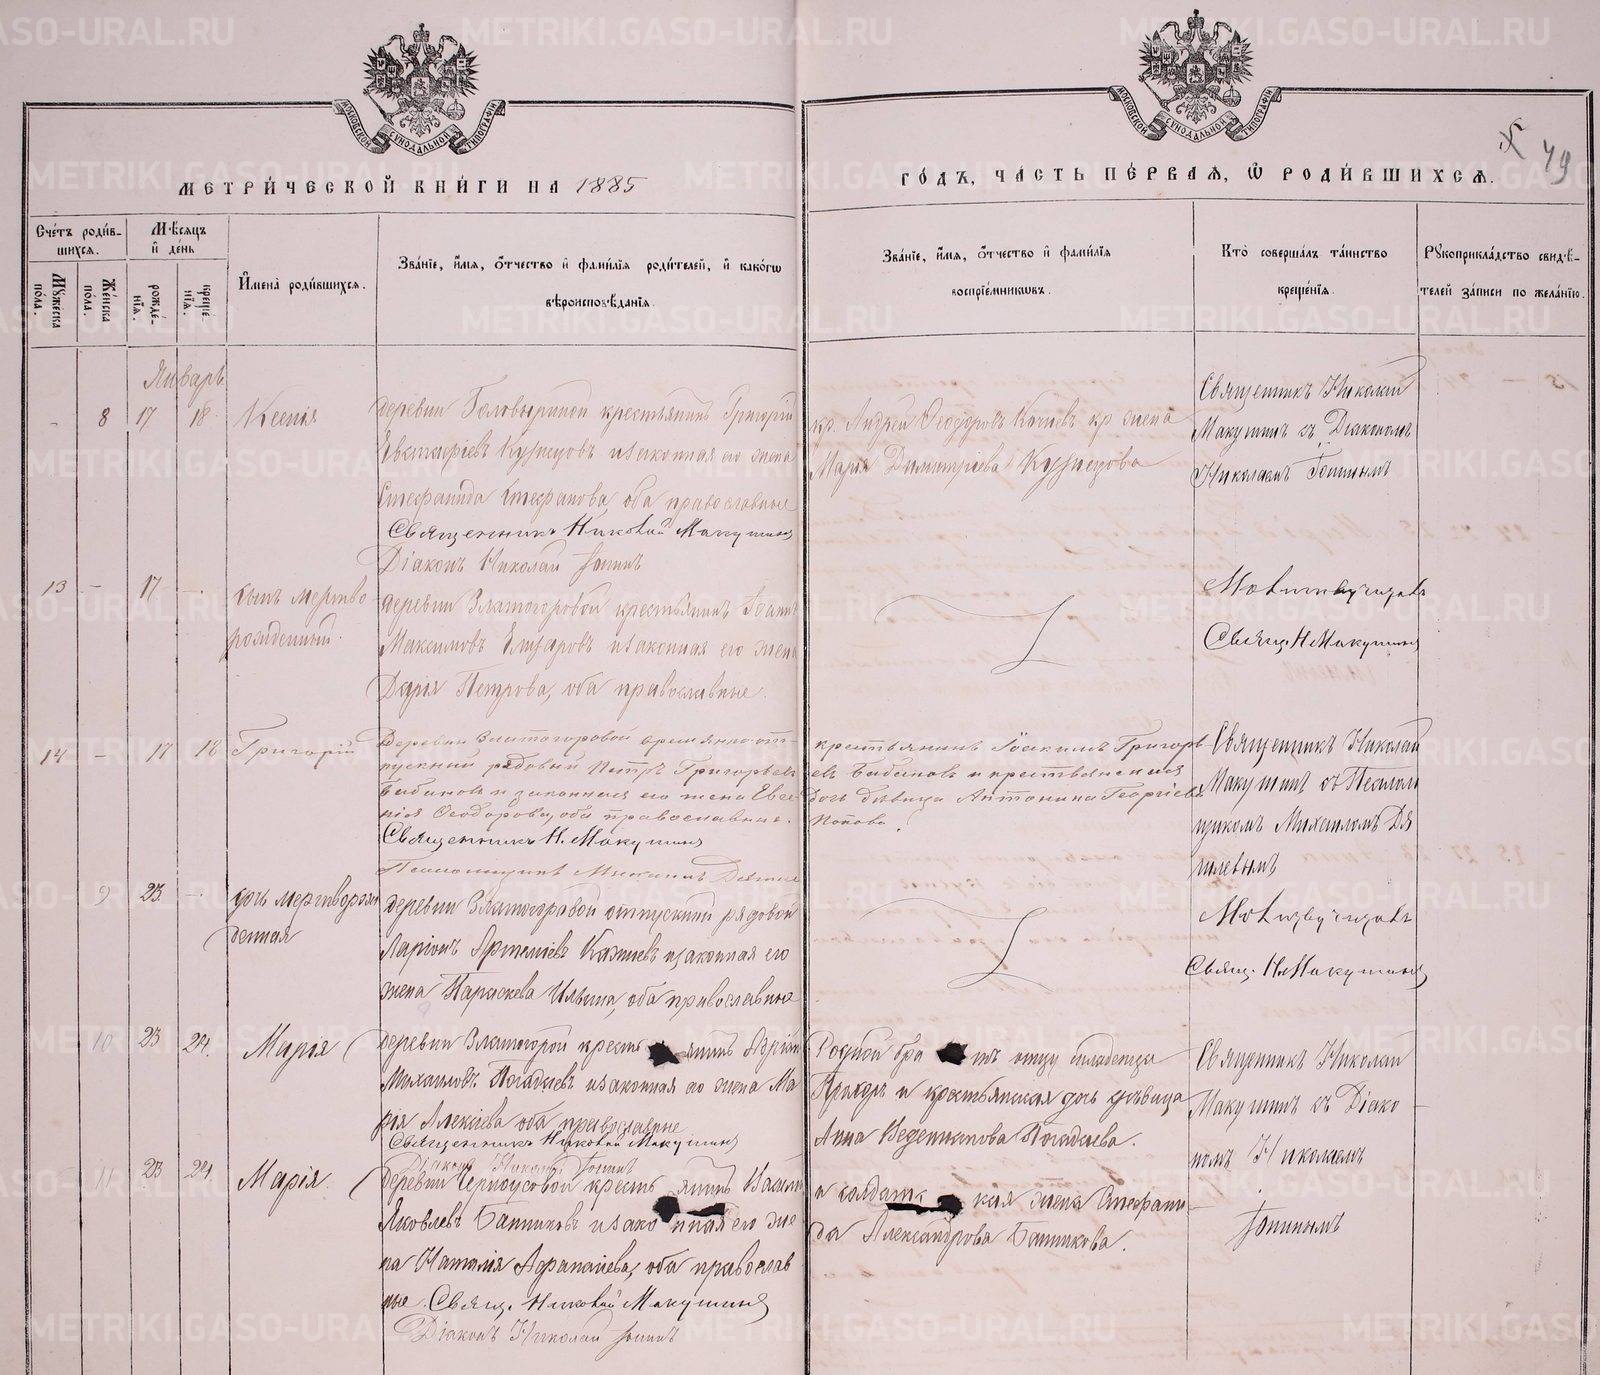 МЕТРИ́ЧЕСКОЙ КНИ́ГИ НА 1885
ГО́ДЪ, ЧА́СТЬ ПЕ́РВАѦ, Ѽ РОДИ́ВШИХСѦ.
49
Сче́тъ роди́в-
шихсѧ.
Мꙋ́жеска по́ла.
Же́нска по́ла.
Мѣ́сѧцъ
и҆ де́нь
рожде́нїѧ.
креще́нїѧ.
И҆мена̀ роди́вшихсѧ.
Зва́нїе, и҆́мѧ, ѻ҆́тчество и҆ фами́лїѧ роди́телей, и҆ како́гѡ
вѣроисповѣ́данїѧ.
Зва́нїе, и҆́мѧ, ѻ҆́тчество и҆ фами́лїѧ
воспрїе́мникѡвъ.
Кто̀ соверша́лъ та́инство
креще́нїѧ.
Рꙋкоприкла́дство свидѣ́-
телей за́писи по жела́нїю.
Январь
- 8 17 18. Ксенія
деревни крестьянинъ Григорій
Кузнецовъ и законная его жена
Стефанида Стефанова, оба православные
Священникъ Николай Макушинъ
Діаконъ Николай Топинъ
кр. Андрей Ѳеодоровъ кр. жена
Марія Димитріева Кузнецова
Священникъ Николай
Макушинъ съ Діакономъ
Николаемъ Топинымъ
13 - 17 - сынъ мертво
рожденный.
деревни Златогоровой крестьянинъ Іоаннъ
Максимовъ и законная его жена
Дарія Петрова, оба православные.
Свящ. Н Макушинъ
14 - 17 18 Григорій
Деревни Златогоровой временно-от-
пускный рядовой Петръ Григорьевъ
Бабиновъ и законная его жена Евге-
нія Ѳеодорова, оба православные.
Священникъ Н. Макушинъ
крестьянинъ Іоакимъ Григорь-
евъ Бабиновъ и крестьянская
дочь дѣвица Антонина Георгіева
Попова.
Священникъ Николай
Макушинъ съ Псалом
щикомъ Михаиломъ
9 23 - дочь мертворож
денная
деревни Златогоровой отпускный рядовой
Ларіонъ и законная его
жена Параскева Ильина, оба православные
Свящ. Н. Макушинъ
10 23 24. Марія
деревни Златогорой кресть янинъ
Михаиловъ Погадаевъ и законная его жена Ма
рія Алексіева оба православные
Священникъ Николай Макушинъ
Діаконъ Николай Топинъ
Родной бра тъ отцу младенца
и крестьянская дочь дѣвица
Анна Ведениктова Погадаева.
Священникъ Николай
Макушинъ съ Діако
номъ Николаемъ
Топинымъ
11 23 24. Марія.
деревни Черноусовой кресть янинъ Василій
Яковлевъ Банниковъ и зако нная его же
на Наталія Афанасіева, оба православ
ные. Свящ. Николай Макушинъ
Діаконъ Николай Топинъ
и солдатс кая жена Стефани
да Александрова Банникова.
METRIKI.GASO-URAL.RU